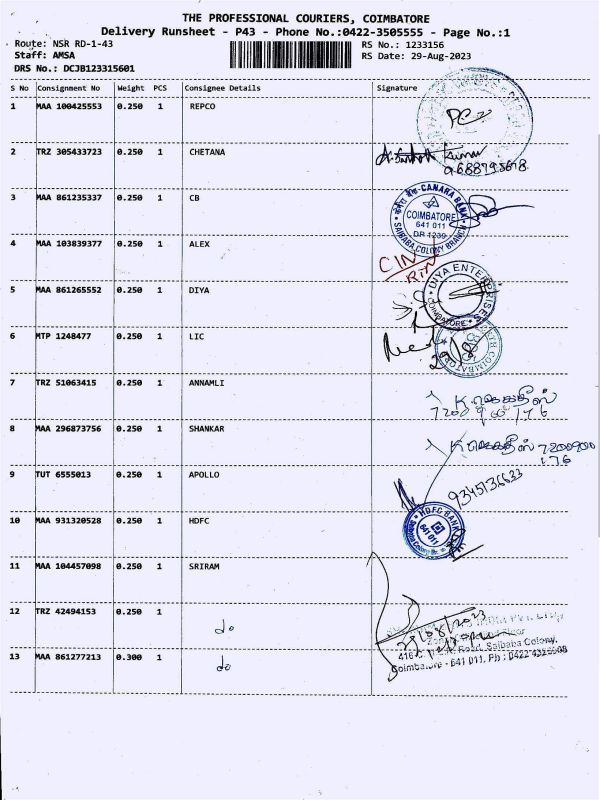 THE PROFESSIONAL COURIERS, COIMBATORE
Delivery Runsheet - P43 - Phone No.:0422-3505555 - Page No.:1
Route: NSR RD-1-43 RS No.: 1233156
Staff: AMSA RS Date: 29-Aug-2023
DRS No.: DCJB123315601
S No Consignment No Weight PCS Consignee Details Signature
1 MAA 100425553 0.250 1 REPCO
2 TRZ 305433723 0.250 1 CHETANA
Kumar
9688795678
3 MAA 861235337 0.250 1 CB
CANARA BANK
COIMBATORE
641 011
DR 1239
SAIBABA COLONY BRANCH
4 MAA 103839377 0.250 1 ALEX
5 MAA 861265552 0.250 1 DIYA
DIYA ENTERPRISES
COIMBATORE
6 MTP 1248477 0.250 1 LIC
COIMBATORE
7 TRZ 51063415 0.250 1 ANNAMLI
8 MAA 296873756 0.250 1 SHANKAR
9 TUT 6555013 0.250 1 APOLLO
9345136633
10 MAA 931320528 0.250 1 HDFC
HDFC BANK
641 011
11 MAA 104457098 0.250 1 SRIRAM
12 TRZ 42494153 0.250 1 do
13 MAA 861277213 0.300 1 do
INDIA PVT. LTD.
Floor
Road, Saibaba Colony,
Coimbatore - 641 011. Ph : 0422